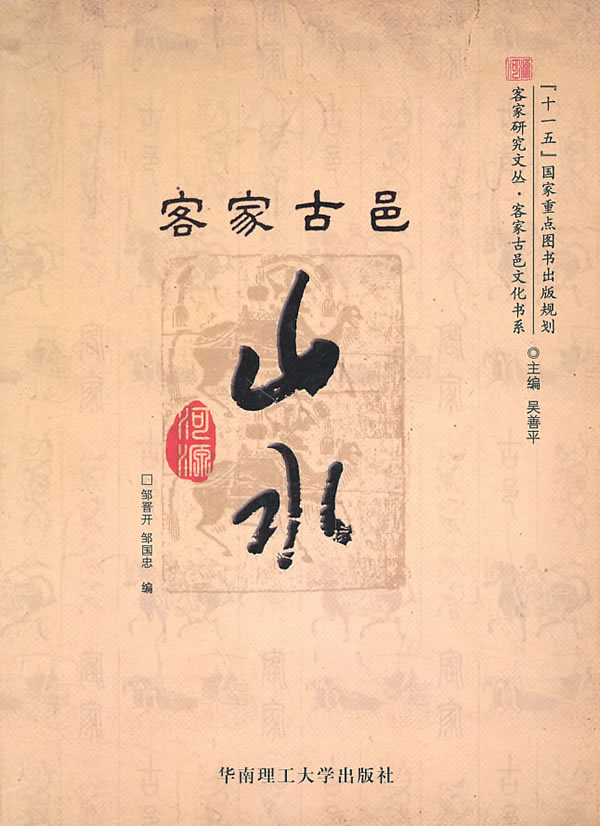 河源
『十一五』国家重点图书出版规划
客家研究文丛·客家古邑文化书系
◎主编 吴善平
客家古邑
山水
河源
□邹晋开 邹国忠 编
华南理工大学出版社